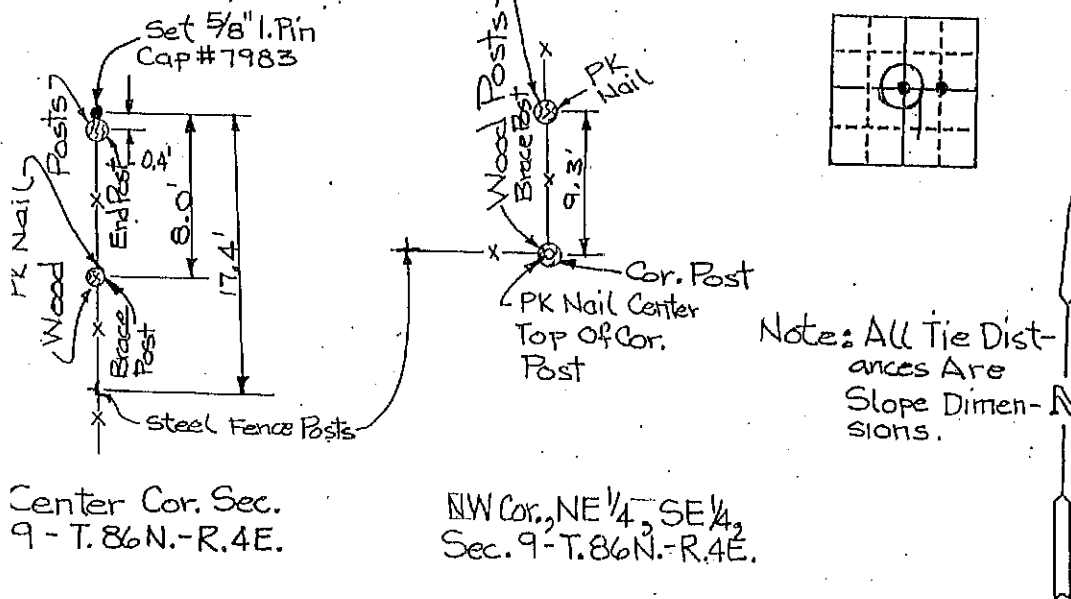 Set 5/8" I.Pin
Cap #7983
Posts
PK Nail
Wood
End Post
0.4'
8.0'
17.4'
Brace
Post
Steel Fence Posts
Center Cor. Sec.
9 - T. 86 N. - R. 4 E.
Wood Posts
Brace Post
PK
Nail
9.3'
Cor. Post
PK Nail Center
Top Of Cor.
Post
NW Cor., NE 1/4, SE 1/4,
Sec. 9 - T. 86 N. - R. 4 E.
Note: All Tie Dist-
ances Are
Slope Dimen-
sions.
N